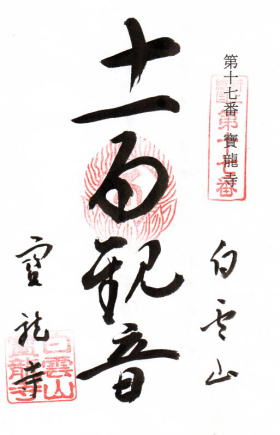 第十七番 寶龍寺
第十七番
白雲山
十一面観音
寶龍寺
白雲山
寶龍寺